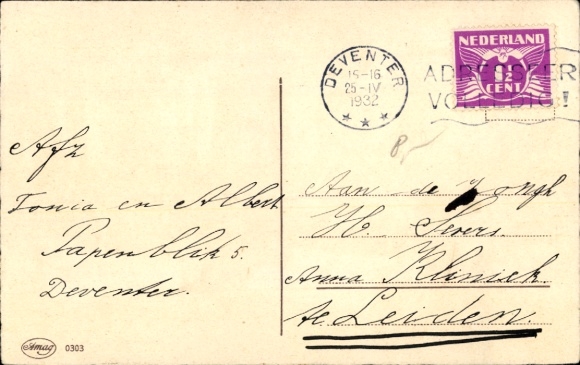 NEDERLAND
1½
CENT
DEVENTER
15-16
25-IV
1932
ADRESSEER
VOLLEDIG!
8,-
Afz
Tonia en Albert
Papenblik 5.
Deventer.
Aan de Jongh
H. Severs.
Anna Kliniek
te Leiden.
Amag
0303